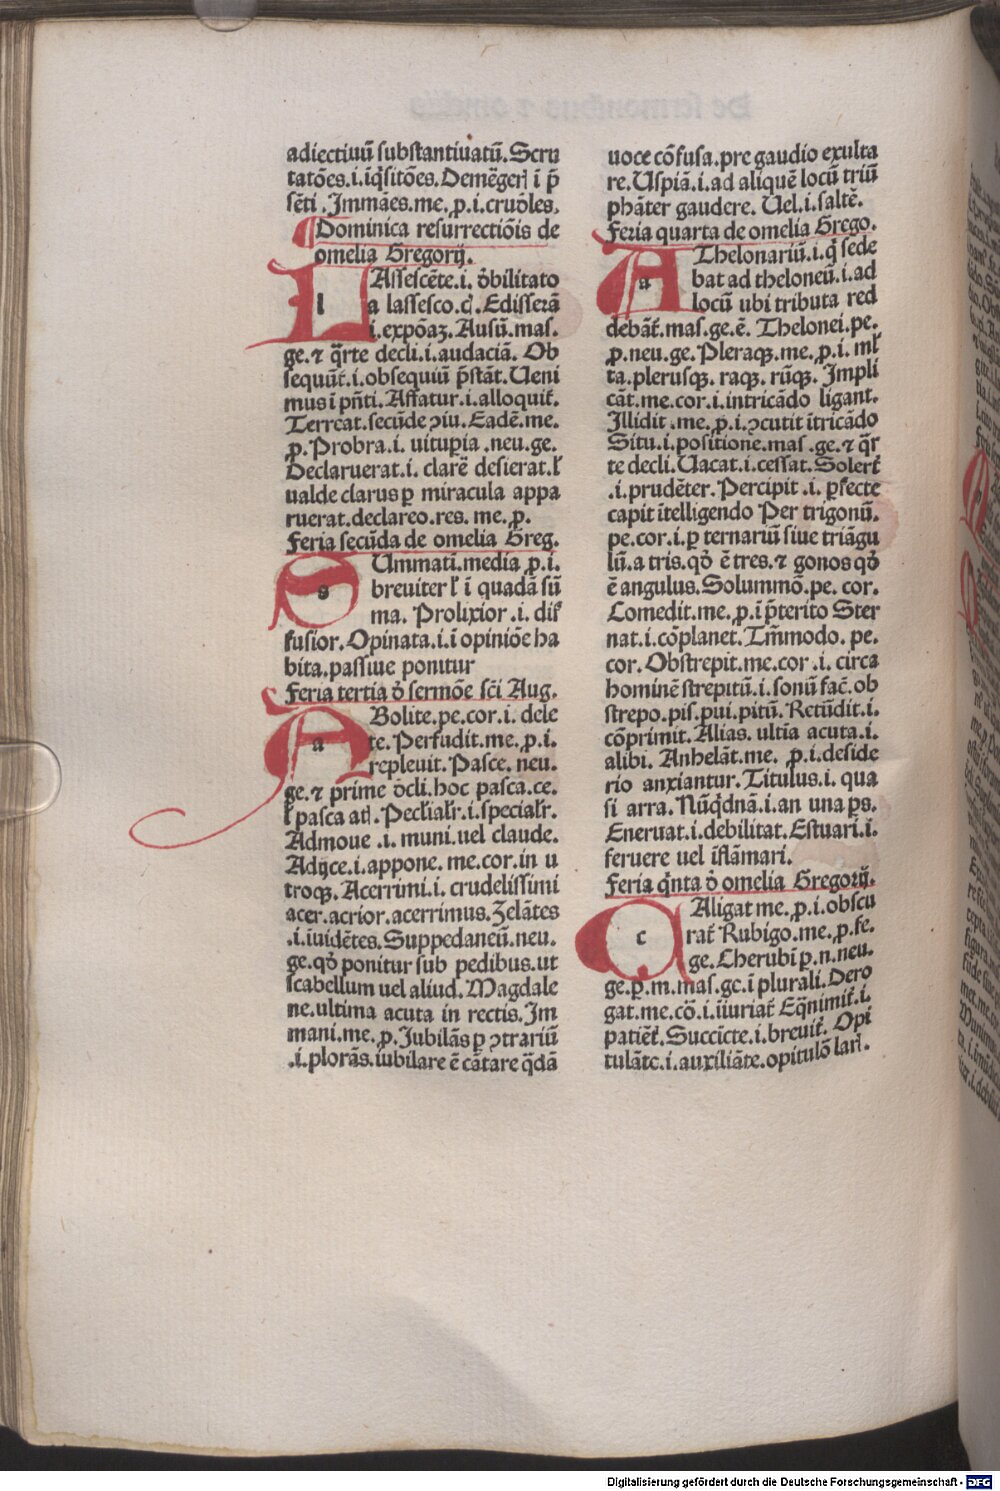 adiectiuū substantiuatū. Scru
tatōes.i.iq̄sitōes. Demēgerꝭ ī p̄
sēti. Jmmāes.me.ꝓ.i.cruōles.
Dominica resurrectiōis de
omelia Gregorij.
LAssescēte.i. ōbilitato
a lassesco.cꝭ. Edisserā
i.expōaꝫ. Ausū.mas.
ge.⁊ q̄rte decli.i.audaciā. Ob
sequūt̄.i.obsequiū p̄stāt. Ueni
mus ī pn̄ti. Affatur.i.alloquit̄.
Terreat.secūde ꝯiu. Eadē.me.
ꝓ. Probra.i. uituꝑia .neu.ge.
Declaruerat.i. clarē desierat.ł
ualde clarus ꝑ miracula appa
ruerat.declareo.res. me.ꝓ.
Feria secūda de omelia Greg.
SUmmatī.media ꝓ.i.
breuiter ł ī quadā sū
ma. Prolixior .i. dif
fusior. Opinata.i.ī opiniōe ha
bita.passiue ponitur
Feria tertia ō sermōe sc̄i Aug.
ABolite.pe.cor.i. dele
te. Perfudit.me.ꝓ.i.
repleuit. Pasce. neu.
ge.⁊ prime ōcli.hoc pasca.ce.
ł pasca atꝭ. Pecl̄ialr̄.i.specialr̄.
Admoue .i. muni uel claude.
Adijce.i.appone. me.cor.in u
troqꝫ. Acerrimi.i. crudelissimi
acer.acrior.acerrimus. Zelātes
.i.īuidētes. Suppedaneū.neu.
ge.qō ponitur sub pedibus.ut
scabellum uel aliud. Magdale
ne.ultima acuta in rectis. Jm
mani.me.ꝓ. Jubilās ꝑ ꝯtrariū
.i.plorās.iubilare ē cātare q̄dā
uoce cōfusa.pre gaudio exulta
re. Uspiā.i.ad aliquē locū triū
phāter gaudere. Uel.i.saltē.
Feria quarta de omelia Grego.
AThelonariū.i.q̄ sede
bat ad theloneū.i.ad
locū ubi tributa red
debāt̄.mas.ge.ē. Thelonei.pe.
ꝓ.neu.ge. Pleraqꝫ.me.ꝓ.i. ml̄
ta.plerusqꝫ. raqꝫ. rūqꝫ. Jmpli
cāt.me.cor.i.intricādo ligant.
Jllidit .me.ꝓ.i.ꝯcutit ītricādo
Situ.i.positione.mas .ge.⁊ q̄r
te decli. Uacat.i.cessat. Solert̄
.i.prudēter. Percipit .i. ꝑfecte
capit ītelligendo Per trigonū.
pe.cor.i.ꝑ ternariū siue triāgu
lū.a tris.qō ē tres.⁊ gonos qō
ē angulus. Solummō.pe. cor.
Comedit.me.ꝓ.i p̄terito Ster
nat.i.cōplanet. Tm̄modo. pe.
cor. Obstrepit.me.cor .i. circa
hominē strepitū.i.sonū fac̄.ob
strepo.pis.pui.pitū. Retūdit.i.
cōprimit. Alias. ultīa acuta.i.
alibi. Anhelāt.me. ꝓ.i.deside
rio anxiantur. Titulus.i. qua
si arra. Nūq̄dnā.i.an una ꝑs.
Eneruat.i.debilitat. Estuari.i.
feruere uel īflāmari.
Feria q̄nta ō omelia Gregorij.
CAligat me.ꝓ.i.obscu
rat̄ Rubigo.me.ꝓ.fe.
ge. Cherubī ꝑ.n.neu.
ge.ꝑ.m.mas.ge.ī plurali. Dero
gat.me.cō.i.iīuriat̄ Eq̄nimit̄.i.
patiēt̄. Succīcte.i.breuit̄. Opi
tulāte.i.auxiliāte.opitulō larꝭ.